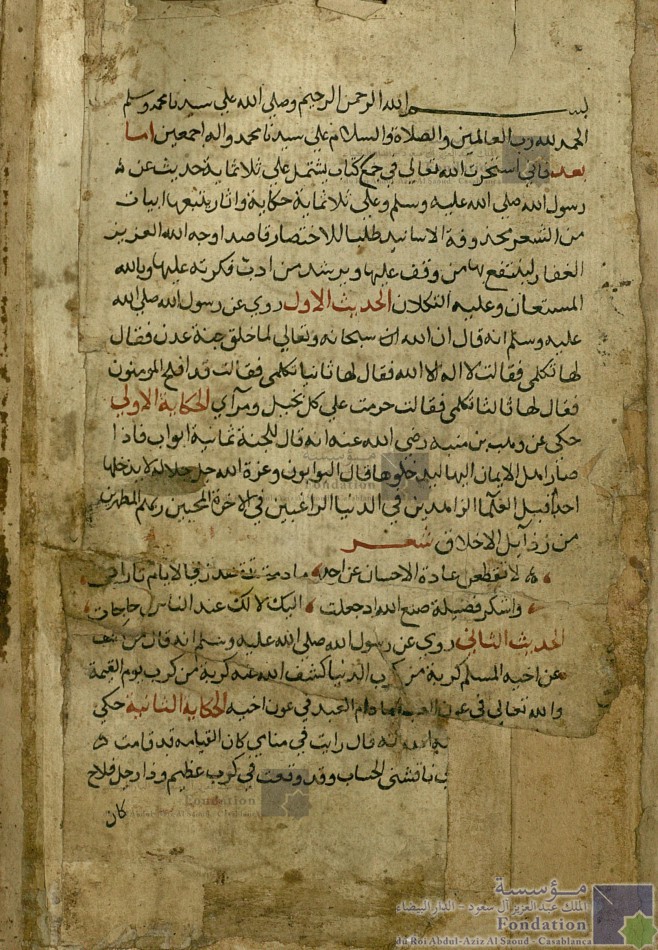 بسم الله الرحمن الرحيم وصلي الله علي سيدنا محمد وسلم
الحمد لله رب العالمين والصلاة والسلام علي سيدنا محمد واله اجمعين اما
بعد فاني استخرت الله تعالي في جمع كتاب يشتمل علي ثلاثماية حديث عن
رسول الله صلي الله عليه وسلم وعلي ثلاثماية حكاية واثار يتبعها ابيات
من الشعر محذوفة الاسانيد طلبا للاختصار قاصدا وجه الله العزيز
الغفار لينتفع بها من وقف عليها ويرشد من ادب فكرته عليها وبالله
المستعان وعليه التكلان الحديث الاول روي عن رسول الله صلي الله
عليه وسلم انه قال ان الله سبحانه وتعالي لما خلق جنة عدن فقال
لها تكلمي فقالت لا اله الا الله فقال لها ثانيا تكلمي فقالت قد افلح المومنون
فقال لها ثالثا تكلمي فقالت حرمت علي كل بخيل ومرآي الحكاية الاولي
حكي عن وهب بن منبه رضي الله عنه انه قال للجنة ثمانية ابواب فاذا
صار اهل الايمان اليها ليدخلوها قال البوابون وعزة الله جل جلاله لا يدخلها
احد قبل العلما الزاهدين في الدنيا الراغبين في الاخرة المحبين ربهم المطهرين
من رذايل الاخلاق شعر
لا تقطعن عادة الاحسان عن احد ما دمت تقدر والايام تارات
واشكر فضيلة صنع الله اذ جعلت اليك لا لك عند الناس حاجات
الحديث الثاني روي عن رسول الله صلي الله عليه وسلم انه قال من كشف
عن اخيه المسلم كربة من كرب الدنيا كشف الله عنه كربة من كرب يوم القيمة
والله تعالي في عون العبد ما دام العبد في عون اخيه الحكاية الثانية حكي
الله انه قال رايت في منامي كان القيامه قد قامت
ناقشني الحساب وقد وقعت في كرب عظيم واذا رجل فلاح
كان
مؤسسة
الملك عبد العزيز آل سعود - الدار البيضاء
Fondation
du Roi Abdul-Aziz Al Saoud - Casablanca